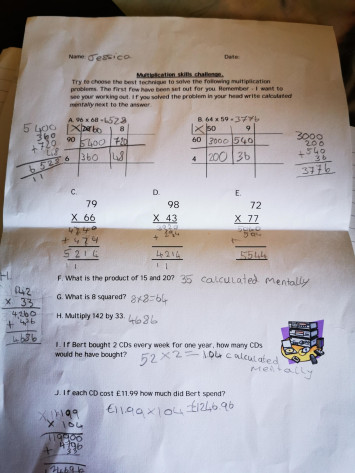 Name: Jessica Date:
Multiplication skills challenge.
Try to choose the best technique to solve the following multiplication
problems. The first few have been set out for you. Remember - I want to
see your working out. If you solved the problem in your head write calculated
mentally next to the answer.
A. 96 x 68 = 6528
X 60 8
90 5400 720
6 360 48
5400
360
+ 720
48
6528
11
B. 64 x 59 = 3776
X 50 9
60 3000 540
4 200 36
3000
200
+ 540
36
3776
C.
79
X 66
4740
+ 474
5214
11
D.
98
X 43
+ 294
4214
11
E.
72
X 77
5544
F. What is the product of 15 and 20? 35 calculated mentally
G. What is 8 squared? 8x8=64
H. Multiply 142 by 33. 4686
142
x 33
4260
+ 426
4686
I. If Bert bought 2 CDs every week for one year, how many CDs
would he have bought? 52 x 2 = 104 calculated
mentally
J. If each CD cost £11.99 how much did Bert spend?
£11.99 x 104 = £1246.96
x 104